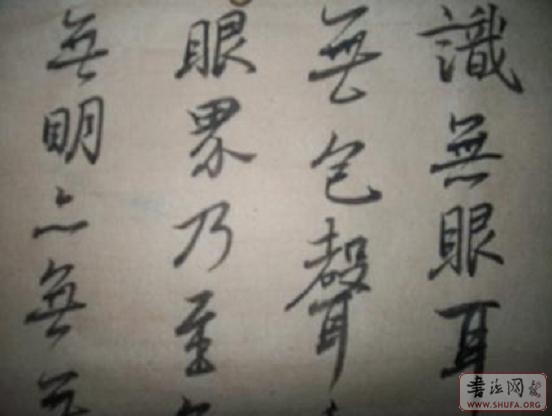 識無眼耳
無色聲
眼界乃至
無明亦無
書法网
WWW.SHUFA.ORG